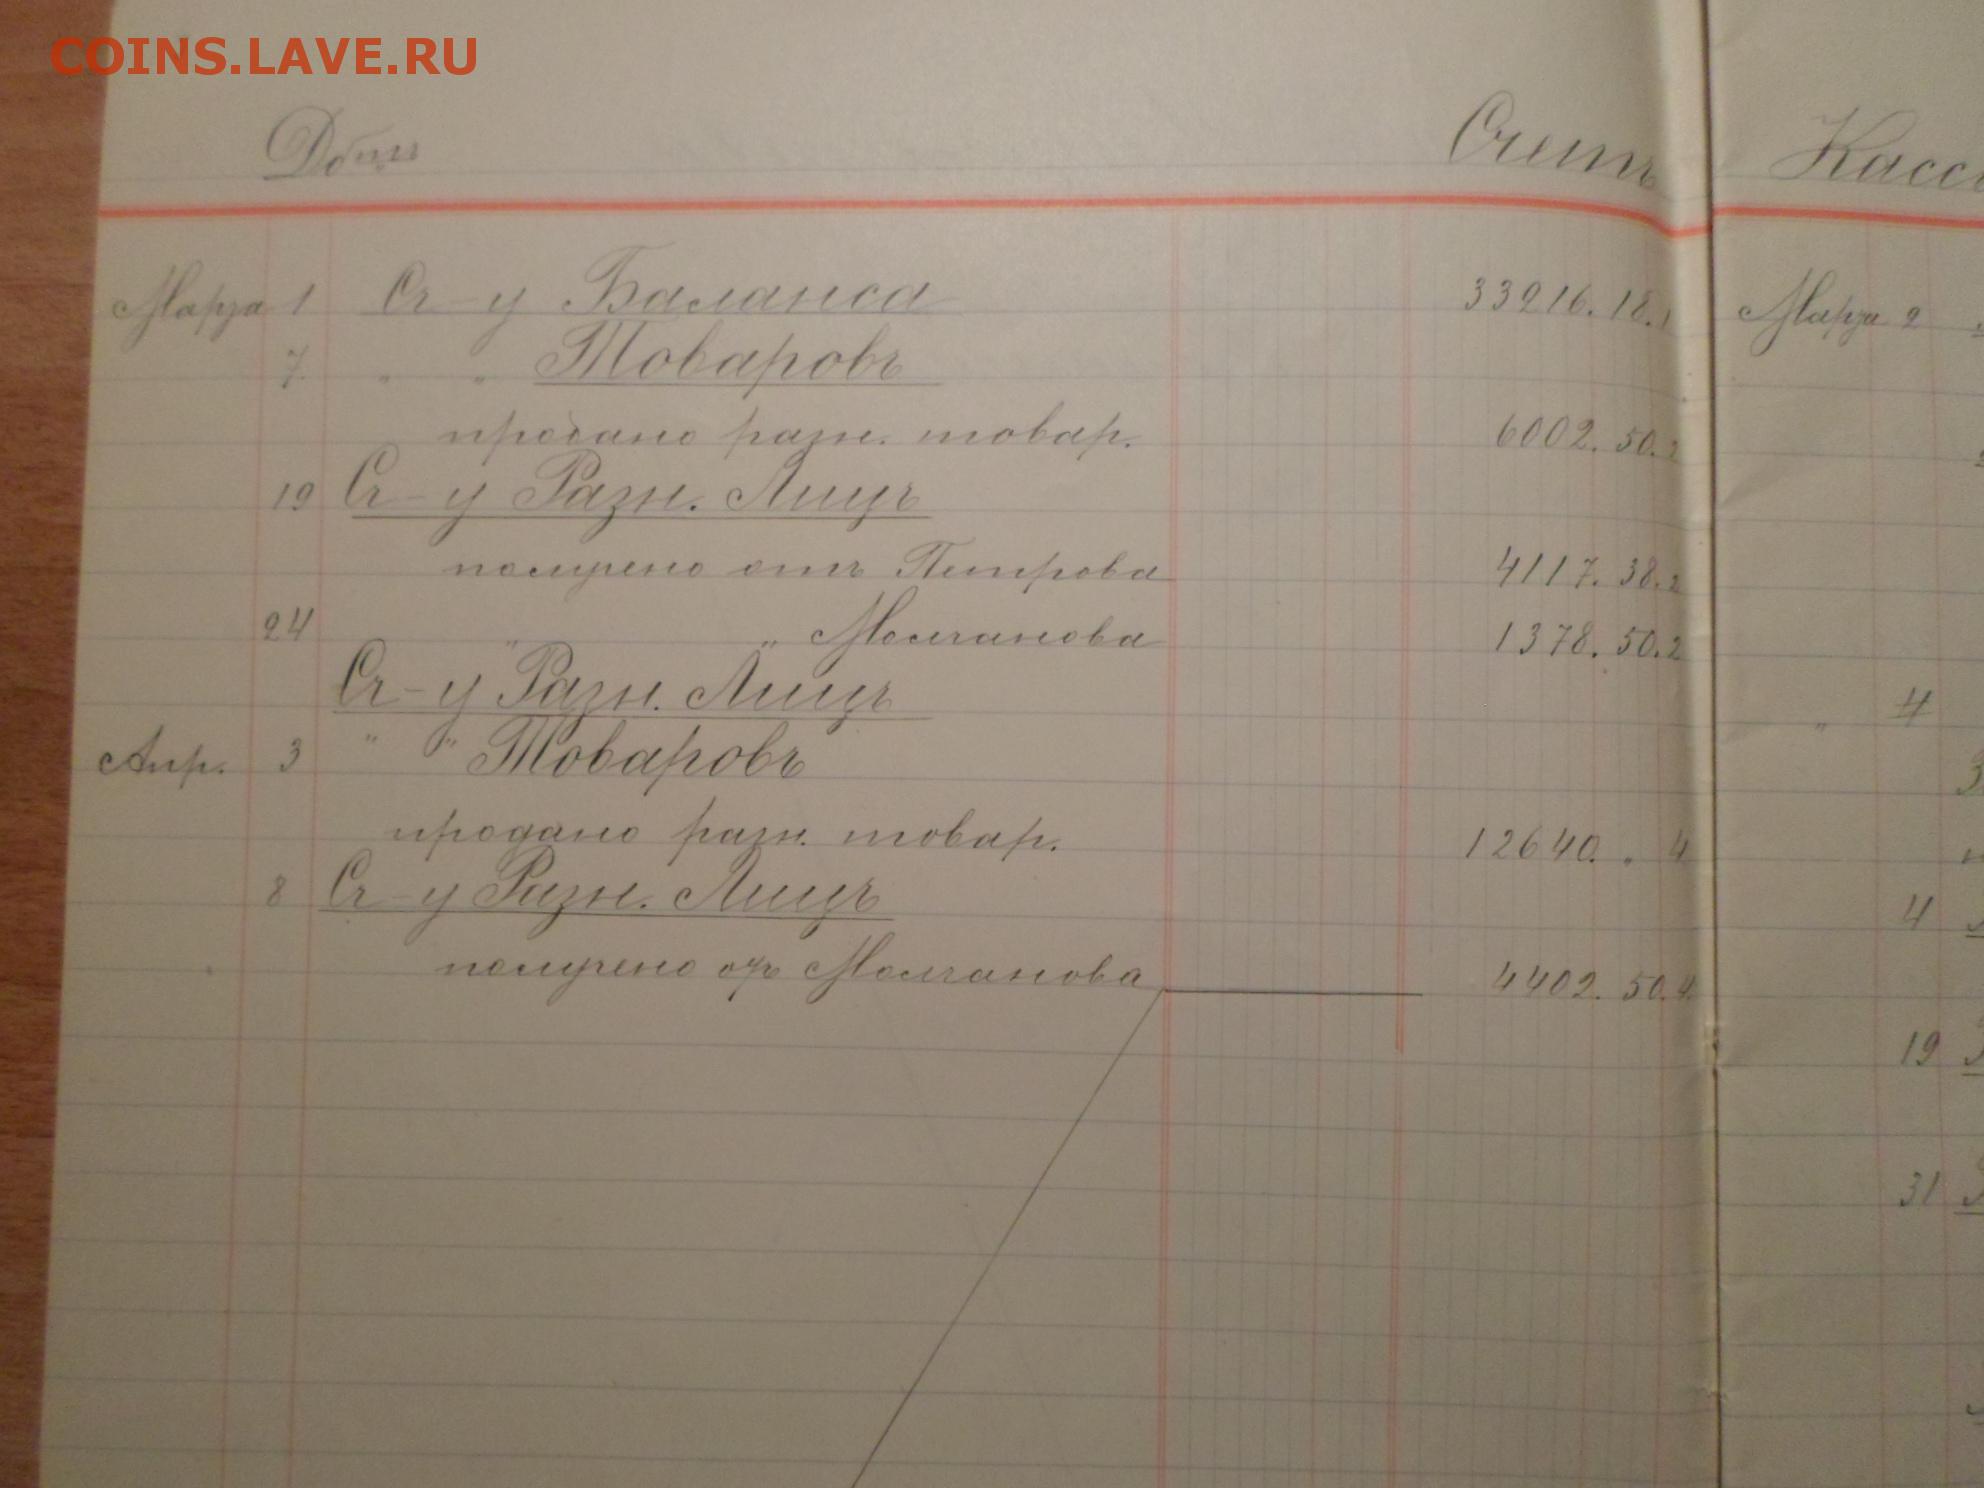 COINS.LAVE.RU
Дебетъ Счетъ
Марта 1 Сч-у Баланса 33216. 18. 1
7 " " Товаровъ
продано разн. товар. 6002. 50. 2
19 Сч-у Разн. Лицъ
получено отъ Петрова 4117. 38. 2
24 " " Молчанова 1378. 50. 2
Сч-у Разн. Лицъ
Апр. 3 " " Товаровъ
продано разн. товар. 12640. " 4
8 Сч-у Разн. Лицъ
получено отъ Молчанова 4402. 50. 4
Касс
Марта 2
" 4
4
19
31